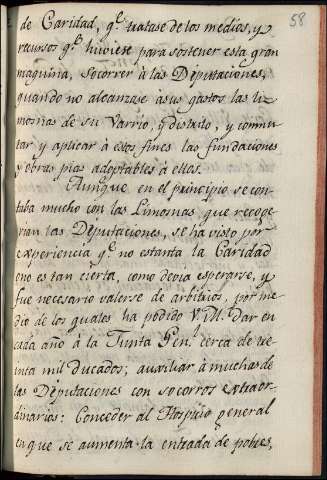 58
de Caridad, q.e tratase de los medios, y
recursos q.e huviese para sostener esta gran
maquina, socorrer à las Dèputaciones,
quando no alcanzase àsus gastos las li-
mosnas de su Varrio, y distrito, y conmu
tar y aplicar à estos fines las fundaciones
y obras pias adoptables à ellos.
Aunque en el principio se con-
taba mucho con las Limosnas que recoge-
rian las Dèputaciones, se ha visto por
experiencia q.e no estanta la Caridad
eno es tan cierta, como devia esperarse, y
fue necesario valerse de arbitrios, por me
dio de los quales ha podido V.M. dar en
cada año à la Junta Gen.l cerca de tre
inta mil ducados; auxiliar à muchas de
las Dèputaciones con socorros extraor-
dinarios: Conceder al Hospicio general
en que se aumenta la entrada de pobres,